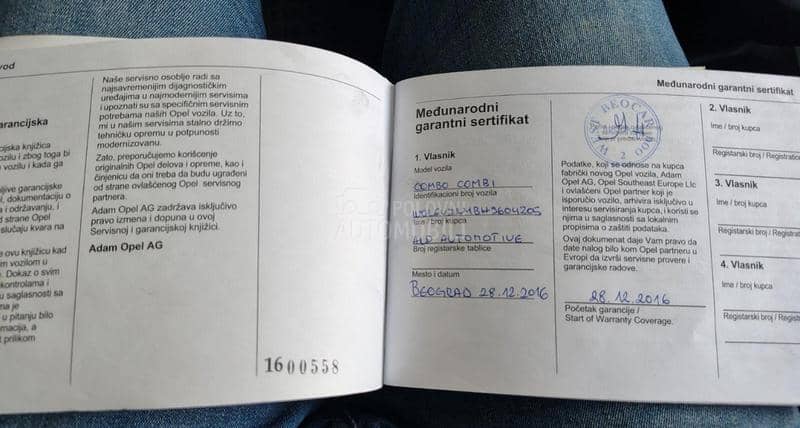 vod
arancijska
cijska knjižica
ozilu i zbog toga bi
vozilu i kada ga
ljive garancijske
, dokumentaciju o
a i održavanju, i
d strane Opel
slučaju kvara na
e ovu knjižicu kad
im vozilom u
. Dokaz o svim
kontrolama i
u saglasnosti sa
ma je
u pitanju bilo
macija, a
t prilikom
Naše servisno osoblje radi sa
najsavremenijim dijagnostičkim
uređajima u najmodernijim servisima
i upoznati su sa specifičnim servisnim
potrebama naših Opel vozila. Uz to,
mi u našim servisima stalno držimo
tehničku opremu u potpunosti
modernizovanu.
Zato, preporučujemo korišćenje
originalnih Opel delova i opreme, kao i
činjenicu da oni treba da budu ugrađeni
od strane ovlašćenog Opel servisnog
partnera.
Adam Opel AG zadržava isključivo
pravo izmena i dopuna u ovoj
Servisnoj i garancijskoj knjižici.
Adam Opel AG
1600558
Međunarodni garantni sertifikat
Međunarodni
garantni sertifikat
1. Vlasnik
Model vozila
COMBO COMBI
Identifikacioni broj vozila
Ime / broj kupca
ALD AUTOMOTIVE
Broj registarske tablice
Mesto i datum
BEOGRAD 28.12.2016
WEST BEOCAR DOO
2
Podatke, koji se odnose na kupca
fabrički novog Opel vozila, Adam
Opel AG, Opel Southeast Europe Llc
i ovlašćeni Opel partner koji je
isporučio vozilo, arhivira isključivo u
interesu servisiranja kupca, i koristi se
njima u saglasnosti sa lokalnim
propisima o zaštiti podataka.
Ovaj dokumenat daje Vam pravo da
date nalog bilo kom Opel partneru u
Evropi da izvrši servisne provere i
garancijske radove.
28.12.2016
Početak garancije /
Start of Warranty Coverage.
2. Vlasnik
Ime / broj kupca
Registarski broj / Registration
3. Vlasnik
Ime / broj kupca
Registarski broj / Registration
4. Vlasnik
Ime / broj kupca
Registarski broj / Registra
POLOVNI
AUTOMOBILI